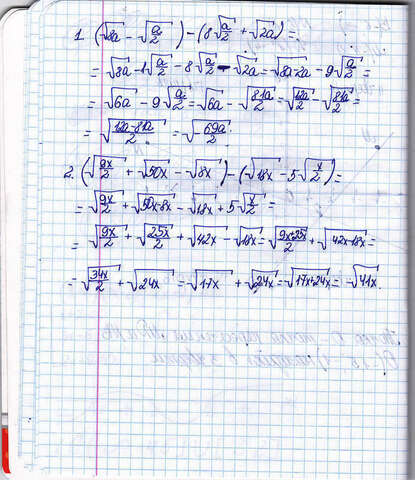 1. (√8a - √a/2) - (8√a/2 + √2a) =
= √8a - 1√a/2 - 8√a/2 - √2a = √8a-2a - 9√a/2 =
= √6a - 9√a/2 = √6a - √81a/2 = √12a/2 - √81a/2 =
= √12a-81a/2 = √-69a/2.
2. (√9x/2 + √50x - √8x) - (√18x - 5√x/2) =
= √9x/2 + √50x-8x - √18x + 5√x/2 =
= √9x/2 + √25x/2 + √42x - √18x = √9x+25x/2 + √42x-18x =
= √34x/2 + √24x = √17x + √24x = √17x+24x = -√41x.